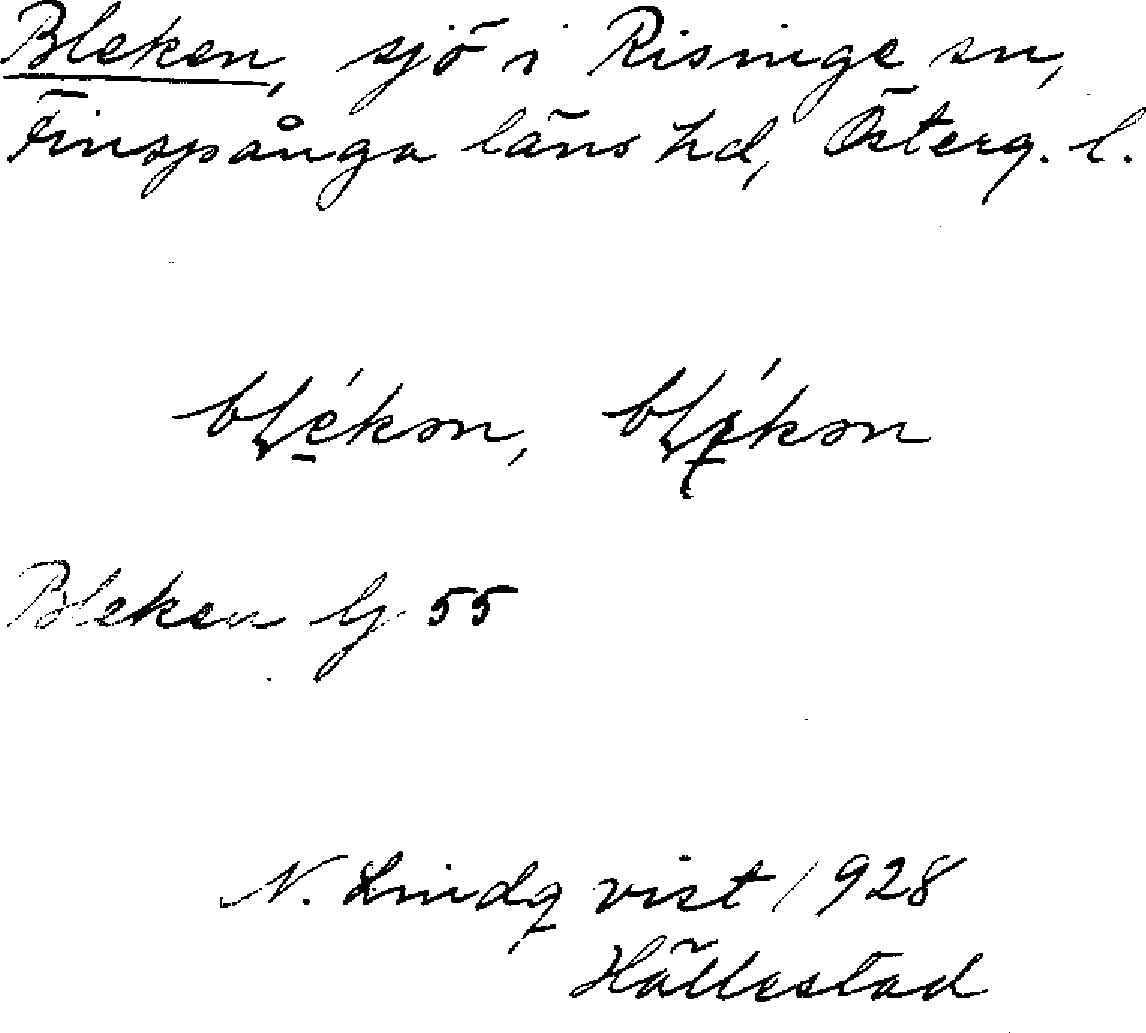 Bleken, sjö i Risinge sn,
Finspånga läns hd, Österg. l.
Bleken Gj 55
N. Lindqvist 1928
Hällestad